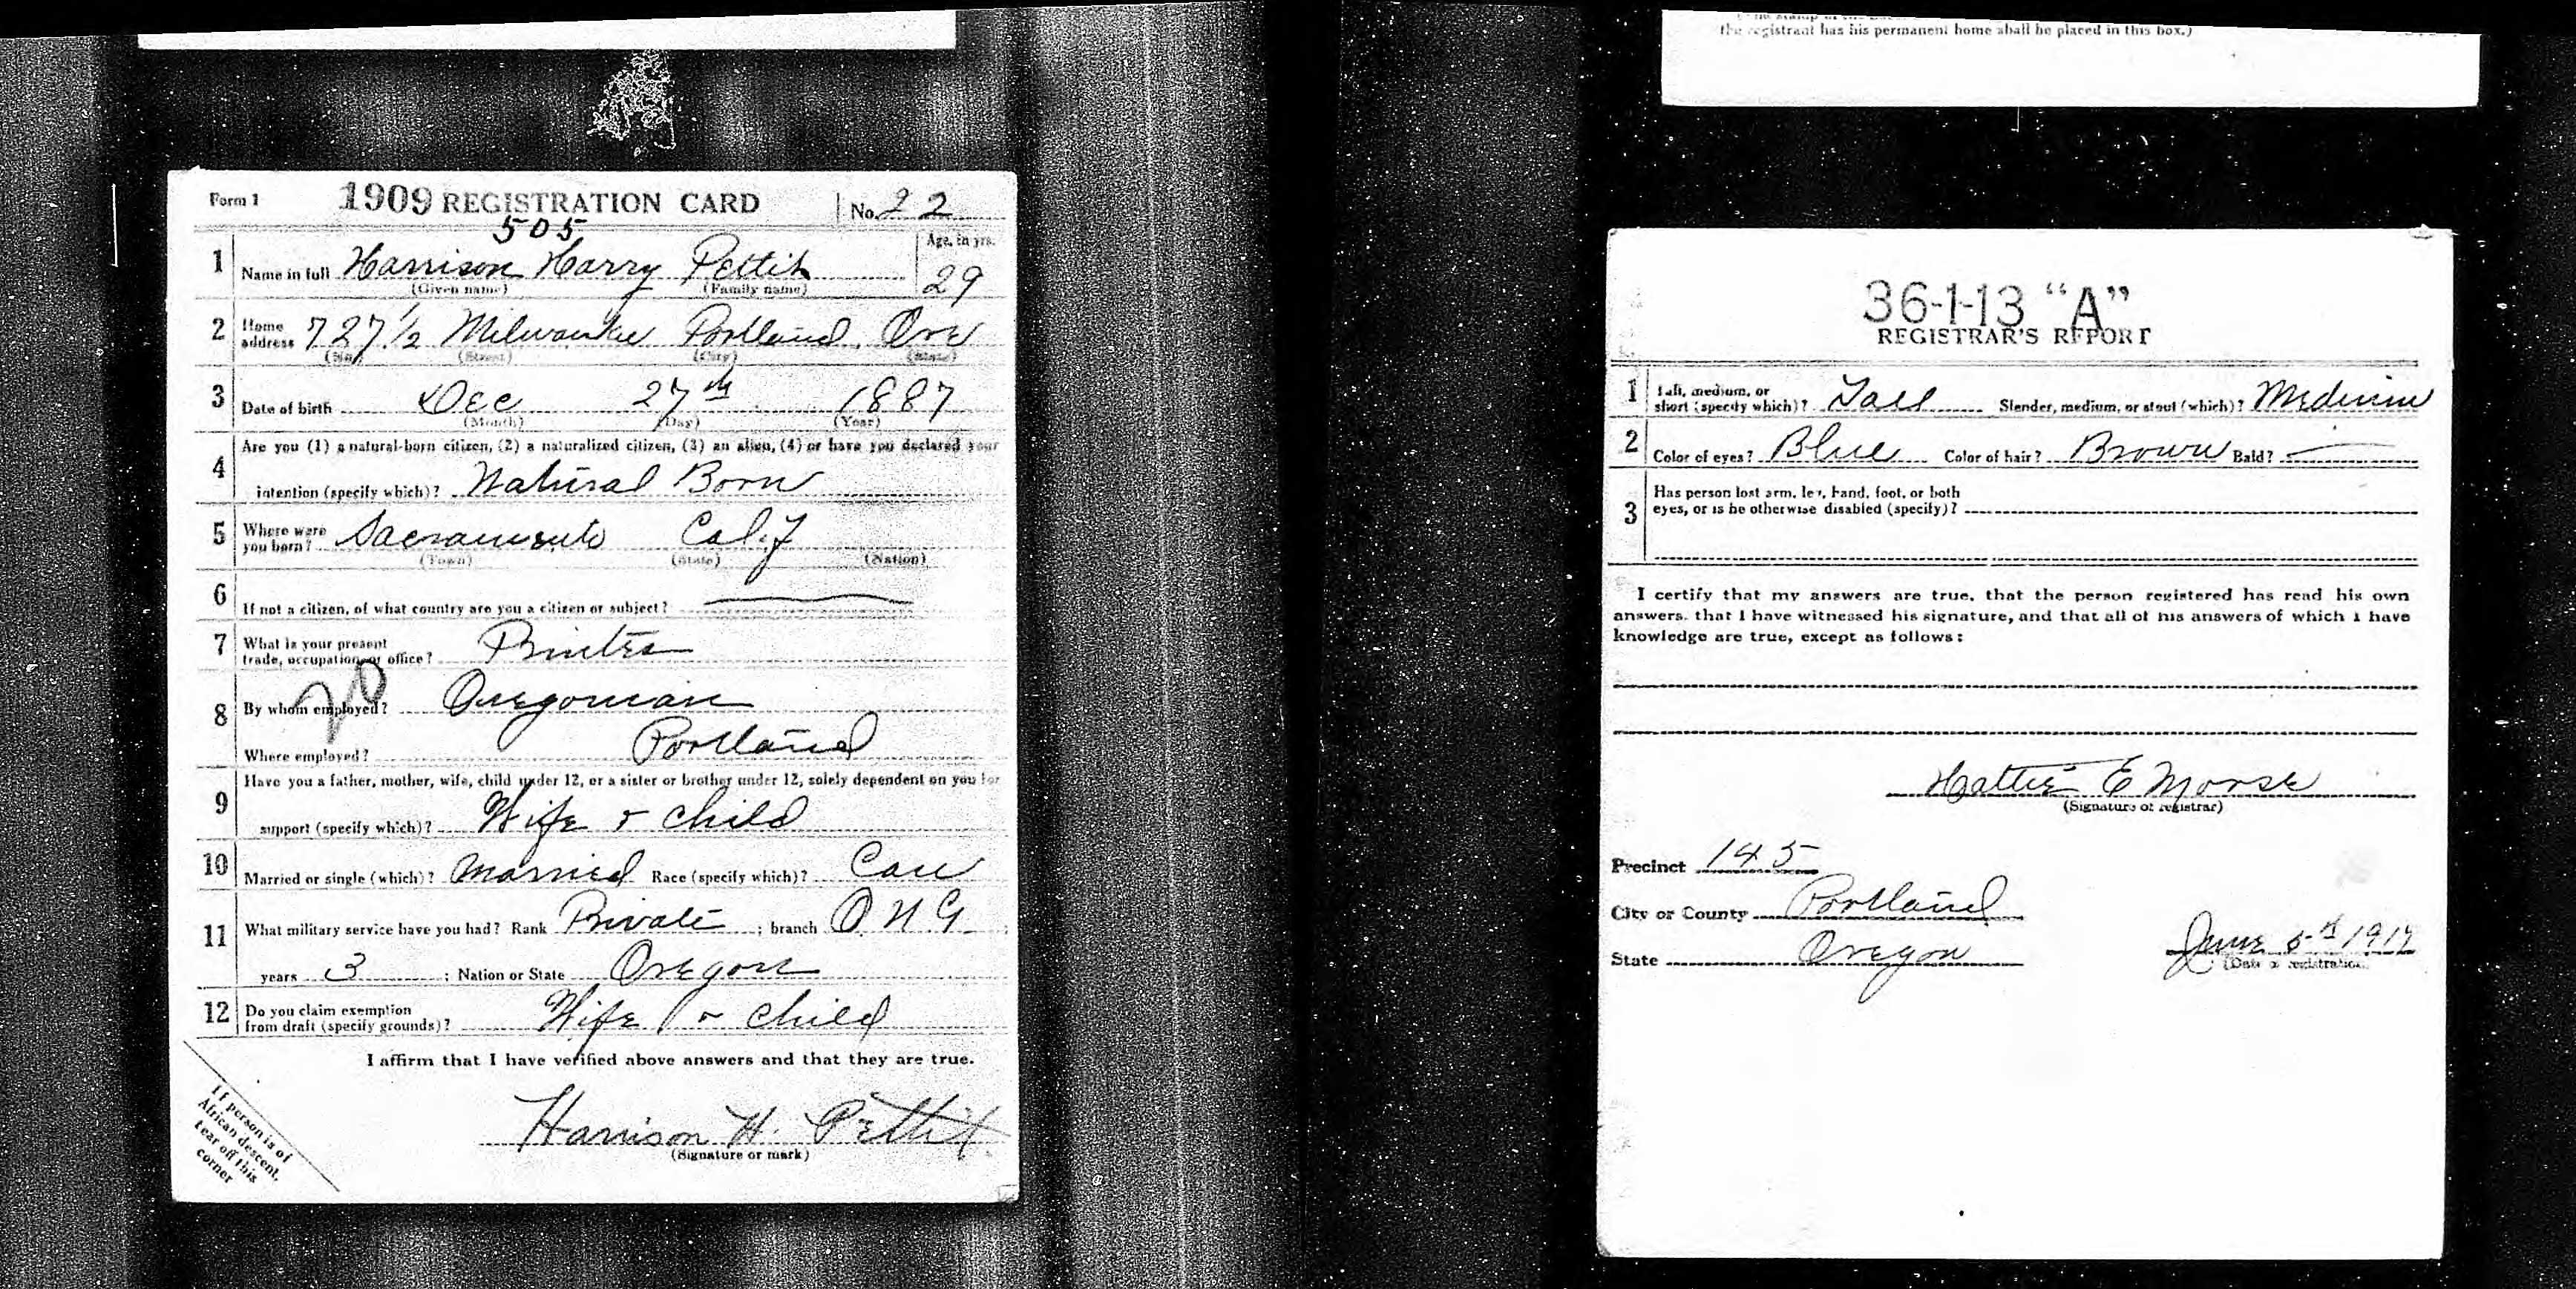 the registrant has his permanent home shall be placed in this box.)
Form 1 1909 REGISTRATION CARD No. 22
505
1 Name in full Harrison Harry Pettit Age, in yrs. 29
(Given name) (Family name)
2 Home address 727 1/2 Milwaukee Portland, Ore
(No.) (Street) (City) (State)
3 Date of birth Dec 27th 1887
(Month) (Day) (Year)
4 Are you (1) a natural-born citizen, (2) a naturalized citizen, (3) an alien, (4) or have you declared your
intention (specify which)? Natural Born
5 Where were you born? Sacramento Calif
(Town) (State) (Nation)
6 If not a citizen, of what country are you a citizen or subject?
7 What is your present trade, occupation, or office? Printer
8 By whom employed? Oregonian
20
Where employed? Portland
9 Have you a father, mother, wife, child under 12, or a sister or brother under 12, solely dependent on you for
support (specify which)? Wife & child
10 Married or single (which)? Married Race (specify which)? Cau
11 What military service have you had? Rank Private ; branch O.N.G. ;
years 3 ; Nation or State Oregon
12 Do you claim exemption from draft (specify grounds)? Wife & child
I affirm that I have verified above answers and that they are true.
Harrison H. Pettit
(Signature or mark)
If person is of
African descent,
tear off this
corner
36-1-13 "A"
REGISTRAR'S REPORT
1 Tall, medium, or short (specify which)? Tall Slender, medium, or stout (which)? Medium
2 Color of eyes? Blue Color of hair? Brown Bald? —
3 Has person lost arm, leg, hand, foot, or both
eyes, or is he otherwise disabled (specify)?
I certify that my answers are true, that the person registered has read his own
answers, that I have witnessed his signature, and that all of his answers of which I have
knowledge are true, except as follows:
Hattie E Morse
(Signature of registrar)
Precinct 145
City or County Portland
State Oregon
June 5th 1917
(Date of registration)